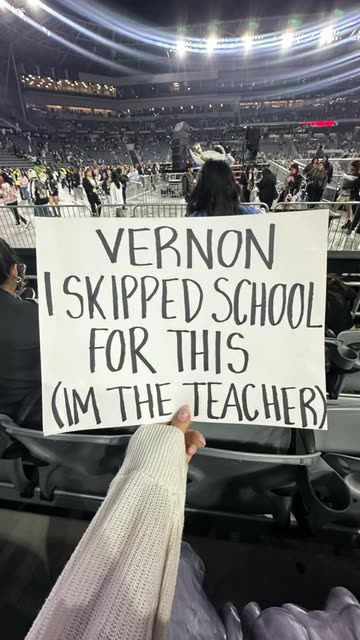 VERNON
I SKIPPED SCHOOL
FOR THIS
(IM THE TEACHER)